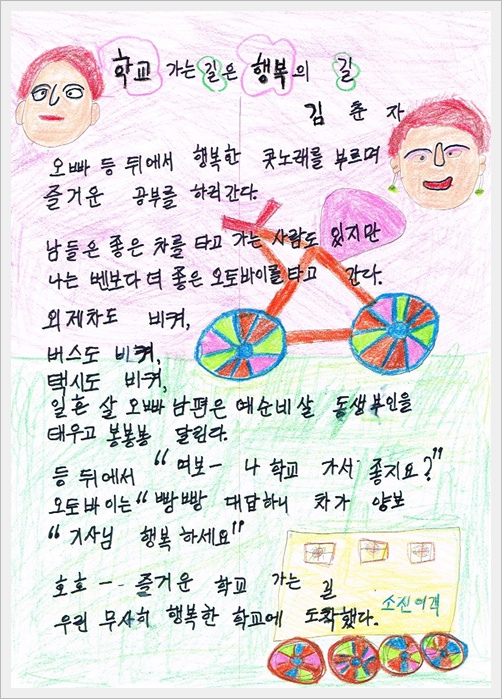 학교 가는 길은 행복의 길
김 춘 자
오빠 등 뒤에서 행복한 콧노래를 부르며
즐거운 공부를 하러간다.
남들은 좋은 차를 타고 가는 사람도 있지만
나는 벤보다 더 좋은 오토바이를 타고 간다.
외제차도 비켜,
버스도 비켜,
택시도 비켜,
일흔 살 오빠 남편은 예순네살 동생부인을
태우고 봉봉봉 달린다.
등 뒤에서 "여보- 나 학교 가서 좋지요?"
오토바이는 "빵빵 대답하니 차가 양보
"기사님 행복하세요"
호호-- 즐거운 학교 가는 길
우린 무사히 행복한 학교에 도착했다.
소진여객